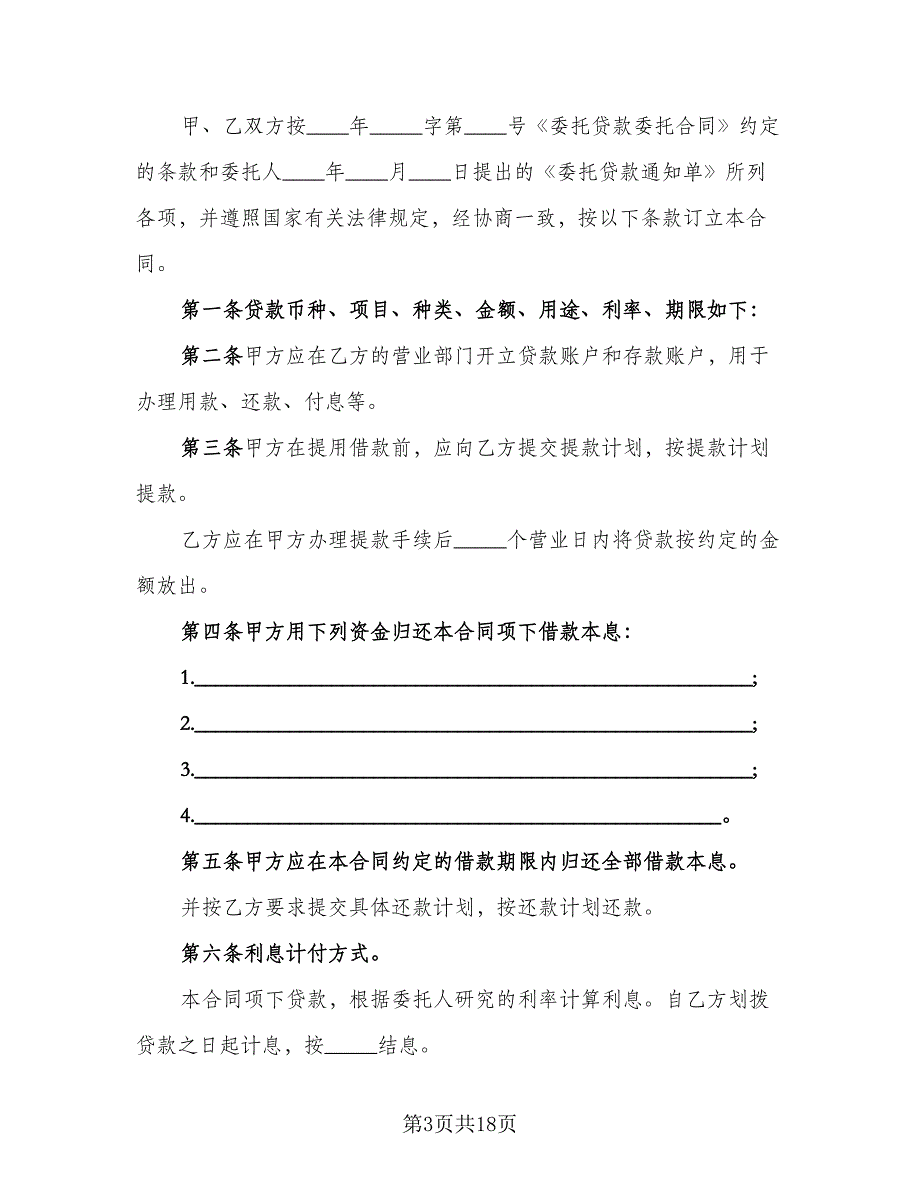 甲、乙双方按____年_____字第____号《委托贷款委托合同》约定
的条款和委托人____年____月____日提出的《委托贷款通知单》所列
各项，并遵照国家有关法律规定，经协商一致，按以下条款订立本合
同。
第一条贷款币种、项目、种类、金额、用途、利率、期限如下：
第二条甲方应在乙方的营业部门开立贷款账户和存款账户，用于
办理用款、还款、付息等。
第三条甲方在提用借款前，应向乙方提交提款计划，按提款计划
提款。
乙方应在甲方办理提款手续后_____个营业日内将贷款按约定的金
额放出。
第四条甲方用下列资金归还本合同项下借款本息：
1._____________________________________________________;
2._____________________________________________________;
3._____________________________________________________;
4.__________________________________________________。
第五条甲方应在本合同约定的借款期限内归还全部借款本息。
并按乙方要求提交具体还款计划，按还款计划还款。
第六条利息计付方式。
本合同项下贷款，根据委托人研究的利率计算利息。自乙方划拨
贷款之日起计息，按_____结息。
第3页共18页